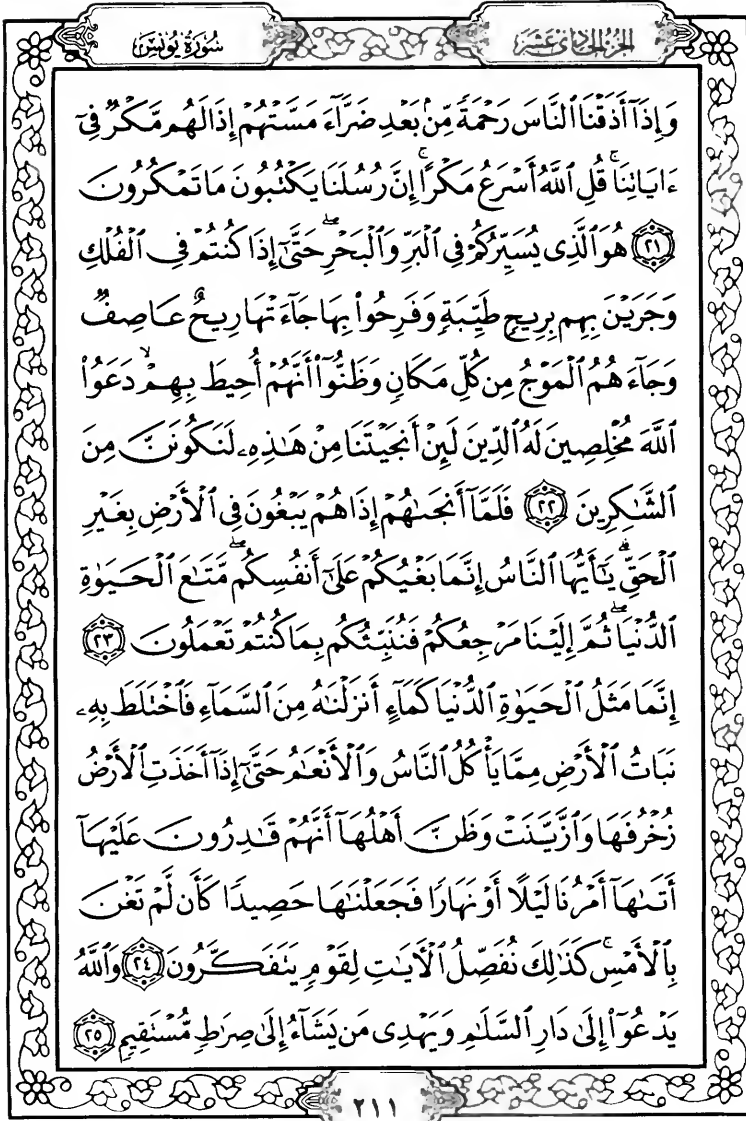 الجزء الحادي عشر
سُورَةُ يُونُسَ
وَإِذَآ أَذَقْنَا ٱلنَّاسَ رَحْمَةً مِّنۢ بَعْدِ ضَرَّآءَ مَسَّتْهُمْ إِذَا لَهُم مَّكْرٌ فِىٓ
ءَايَاتِنَا ۚ قُلِ ٱللَّهُ أَسْرَعُ مَكْرًا ۚ إِنَّ رُسُلَنَا يَكْتُبُونَ مَا تَمْكُرُونَ
﴿٢١﴾ هُوَ ٱلَّذِى يُسَيِّرُكُمْ فِى ٱلْبَرِّ وَٱلْبَحْرِ ۖ حَتَّىٰٓ إِذَا كُنتُمْ فِى ٱلْفُلْكِ
وَجَرَيْنَ بِهِم بِرِيحٍ طَيِّبَةٍ وَفَرِحُوا۟ بِهَا جَآءَتْهَا رِيحٌ عَاصِفٌ
وَجَآءَهُمُ ٱلْمَوْجُ مِن كُلِّ مَكَانٍ وَظَنُّوٓا۟ أَنَّهُمْ أُحِيطَ بِهِمْ ۙ دَعَوُا۟
ٱللَّهَ مُخْلِصِينَ لَهُ ٱلدِّينَ لَئِنْ أَنجَيْتَنَا مِنْ هَـٰذِهِۦ لَنَكُونَنَّ مِنَ
ٱلشَّـٰكِرِينَ ﴿٢٢﴾ فَلَمَّآ أَنجَىٰهُمْ إِذَا هُمْ يَبْغُونَ فِى ٱلْأَرْضِ بِغَيْرِ
ٱلْحَقِّ ۗ يَـٰٓأَيُّهَا ٱلنَّاسُ إِنَّمَا بَغْيُكُمْ عَلَىٰٓ أَنفُسِكُم ۖ مَّتَـٰعَ ٱلْحَيَوٰةِ
ٱلدُّنْيَا ۖ ثُمَّ إِلَيْنَا مَرْجِعُكُمْ فَنُنَبِّئُكُم بِمَا كُنتُمْ تَعْمَلُونَ ﴿٢٣﴾
إِنَّمَا مَثَلُ ٱلْحَيَوٰةِ ٱلدُّنْيَا كَمَآءٍ أَنزَلْنَـٰهُ مِنَ ٱلسَّمَآءِ فَٱخْتَلَطَ بِهِۦ
نَبَاتُ ٱلْأَرْضِ مِمَّا يَأْكُلُ ٱلنَّاسُ وَٱلْأَنْعَـٰمُ حَتَّىٰٓ إِذَآ أَخَذَتِ ٱلْأَرْضُ
زُخْرُفَهَا وَٱزَّيَّنَتْ وَظَنَّ أَهْلُهَآ أَنَّهُمْ قَـٰدِرُونَ عَلَيْهَآ
أَتَىٰهَآ أَمْرُنَا لَيْلًا أَوْ نَهَارًا فَجَعَلْنَـٰهَا حَصِيدًا كَأَن لَّمْ تَغْنَ
بِٱلْأَمْسِ ۚ كَذَٰلِكَ نُفَصِّلُ ٱلْـَٔايَـٰتِ لِقَوْمٍ يَتَفَكَّرُونَ ﴿٢٤﴾ وَٱللَّهُ
يَدْعُوٓا۟ إِلَىٰ دَارِ ٱلسَّلَـٰمِ وَيَهْدِى مَن يَشَآءُ إِلَىٰ صِرَٰطٍ مُّسْتَقِيمٍ ﴿٢٥﴾
٢١١